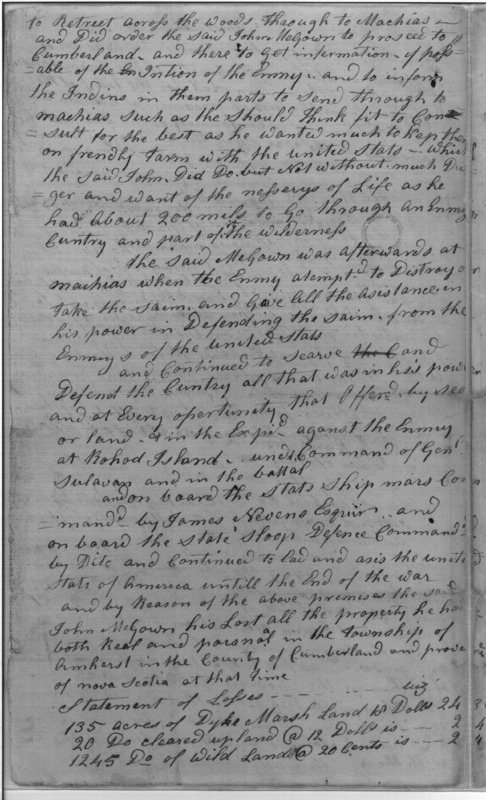 to Retreet across the woods through to Machias
and Did order the said John McGown to proseed to
Cumberland and there to Get information if poss
=able of the Intion of the Enmy and to inform
the Indins in them parts to send through to
machias such as the should think fit to Con
=sult for the best as he wanted much to kep them
on frendly tarm with the united stats - which
the said John Did Do but Not without much Da
ger and want of the nesserys of Life as he
had About 200 mels to Go through An Enmy
Cuntry and part of the wilderness
the said McGown was afterwards at
machias when the Enmy atempt.d to Distroy or
take the saim and Give All the Asistance in
his power in Defending the saim from the
Enmuys of the united stats
and Continued to searve the C and
Defend the Cuntry all that was in his power
and at Every opertunity that Offered by sea
or land & in the Expd. against the Enmuy
at Rohod Island under Command of Genl
Sulavan and in the battal
and on board the Stats Ship mars Com
=mandd by James Nevens Esquir and
on board the state Sloop Defence Commandd
by Dito and Continued to Ead and asis the unite
Stats of America untill the End of the war
and by Reason of the above premises the said
John McGown his Lost all the property he had
both Real and parsnal in the Township of
Amherst in the County of Cumberland and prove
of nova Scotia at that time
Statement of Losses viz
135 acres of Dyke Marsh Land Dolls 24
20 Do cleared upland @ 12 Dolls is 2
1245 Do of Wild Land @ 20 Cents is 2